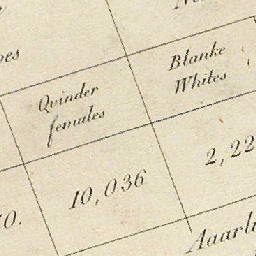 Qvinder
females
Blanke
Whites
10,036
2,22